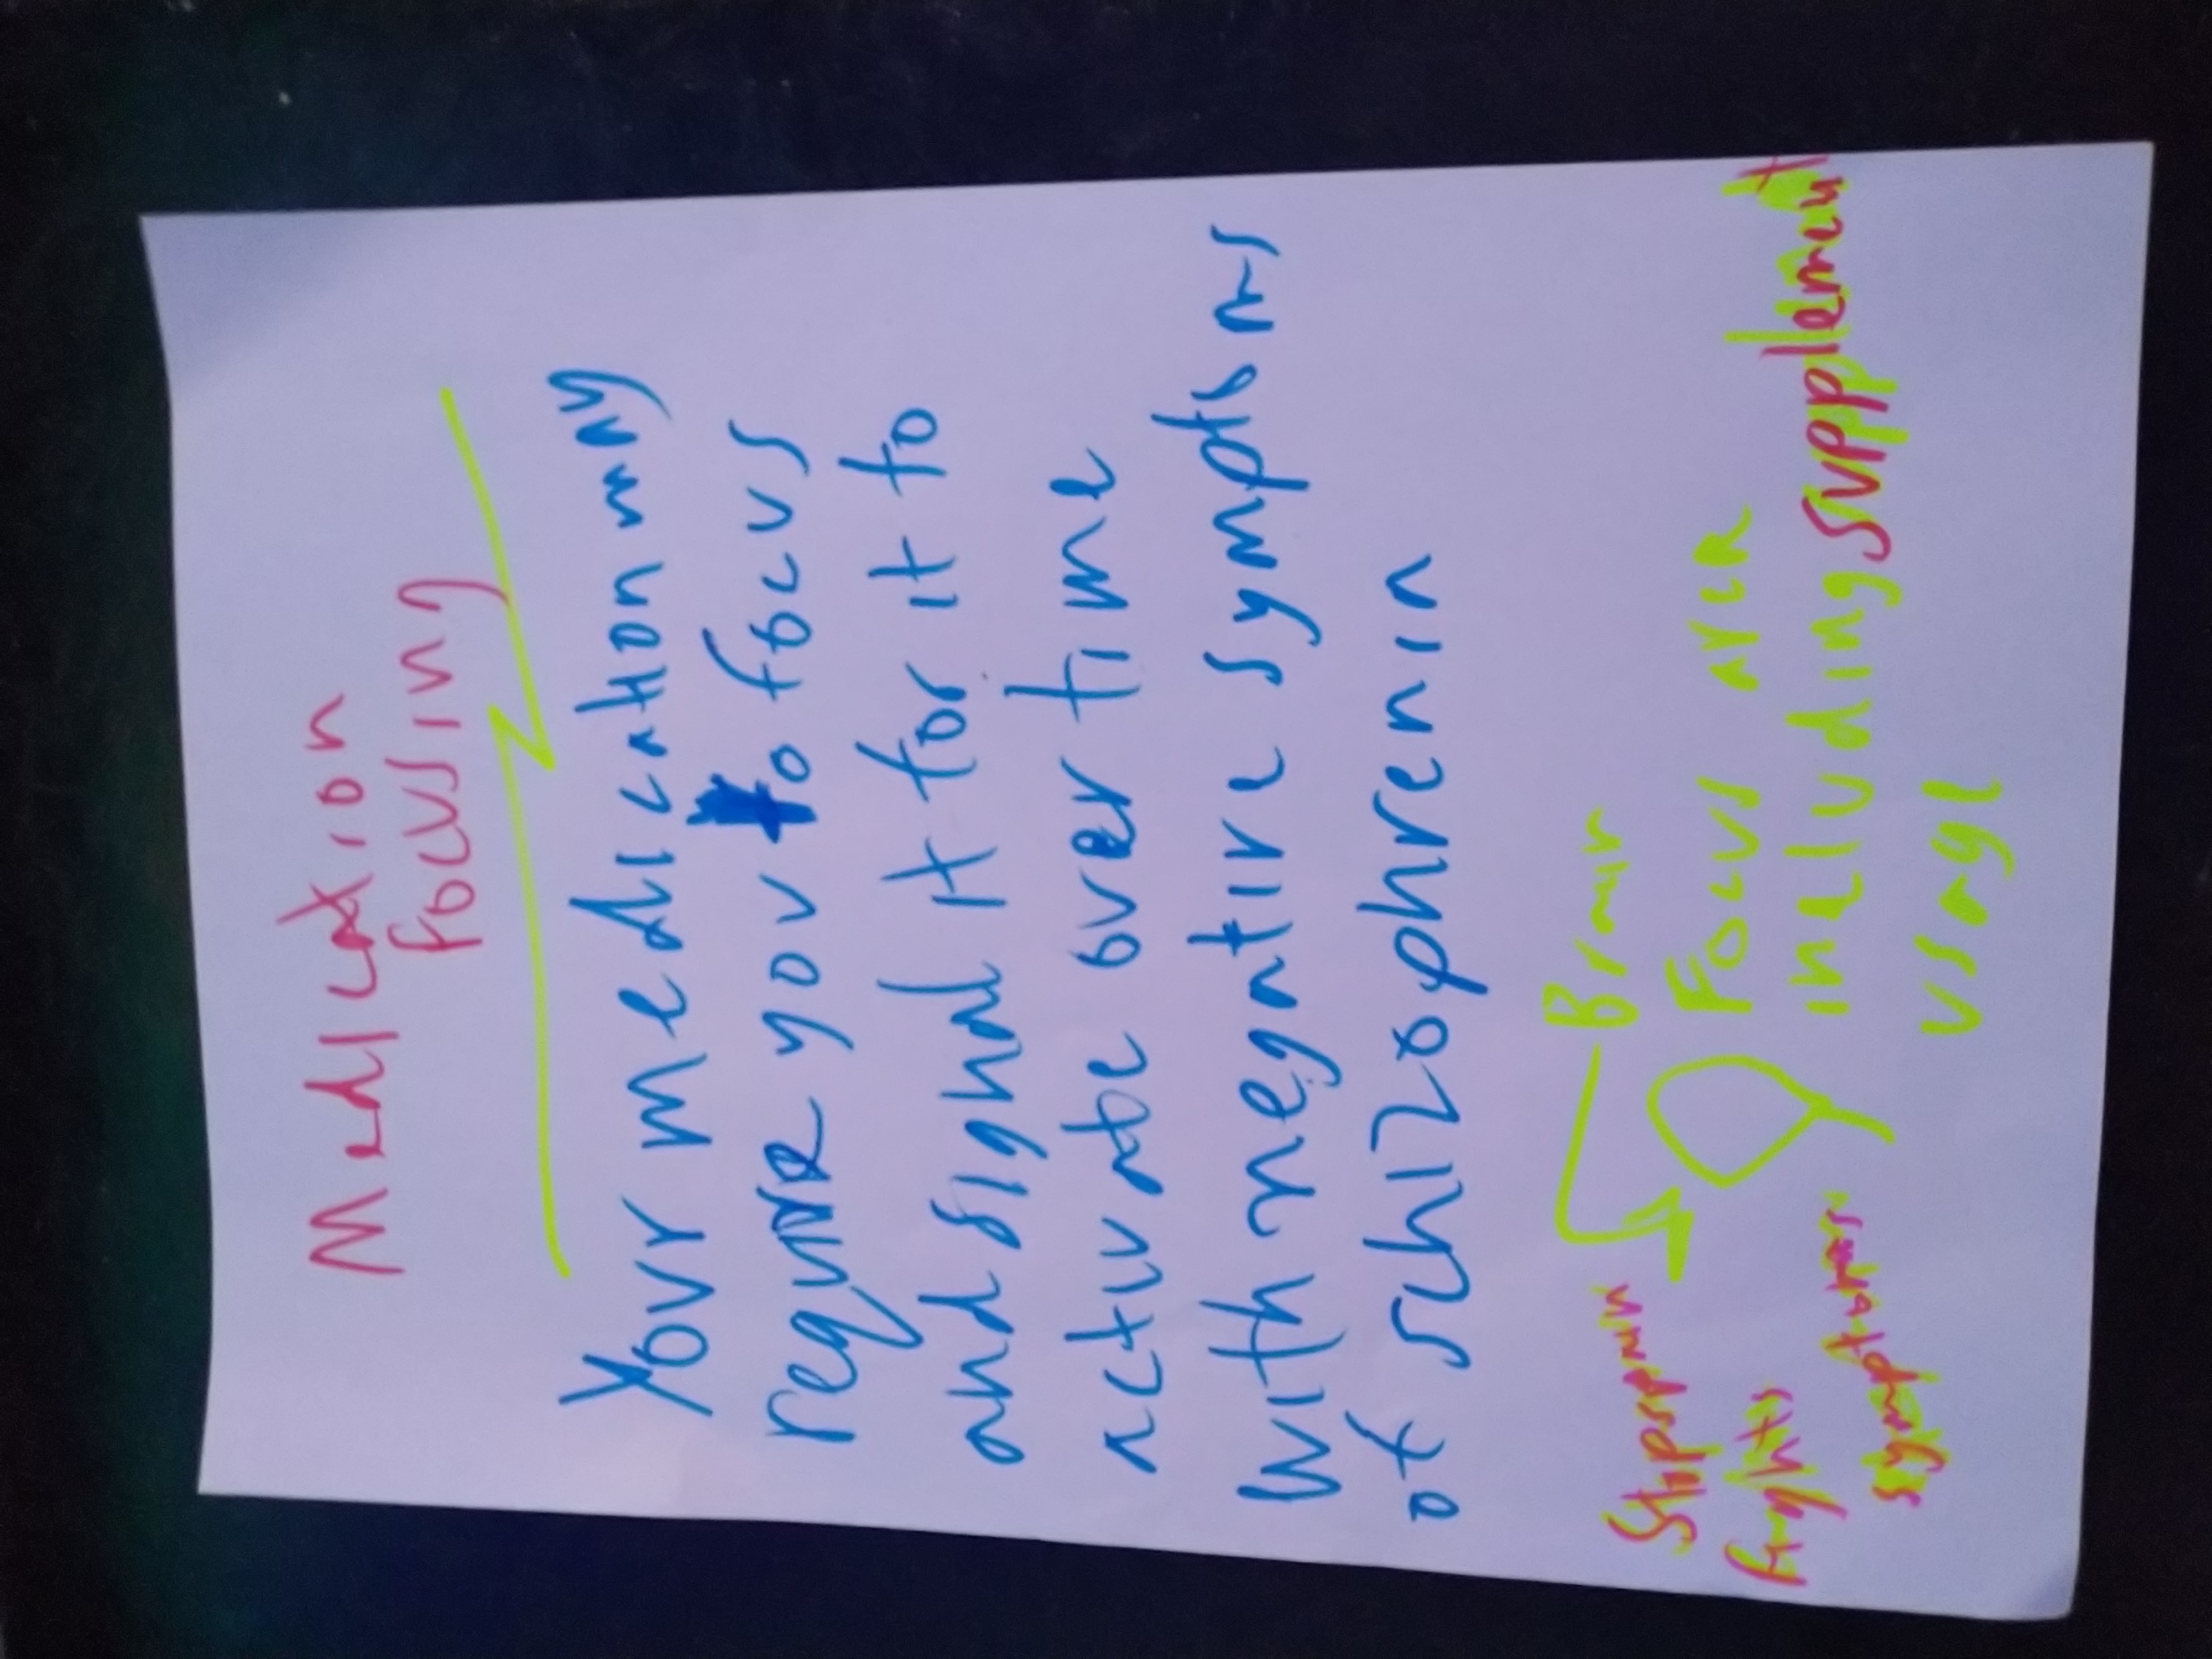 Medication
focusing
Your medication may
require you to focus
and signal it for it to
activate over time
with negative symptoms
of schizophrenia
Brain
Focus Area
including supplement
usage
symptoms